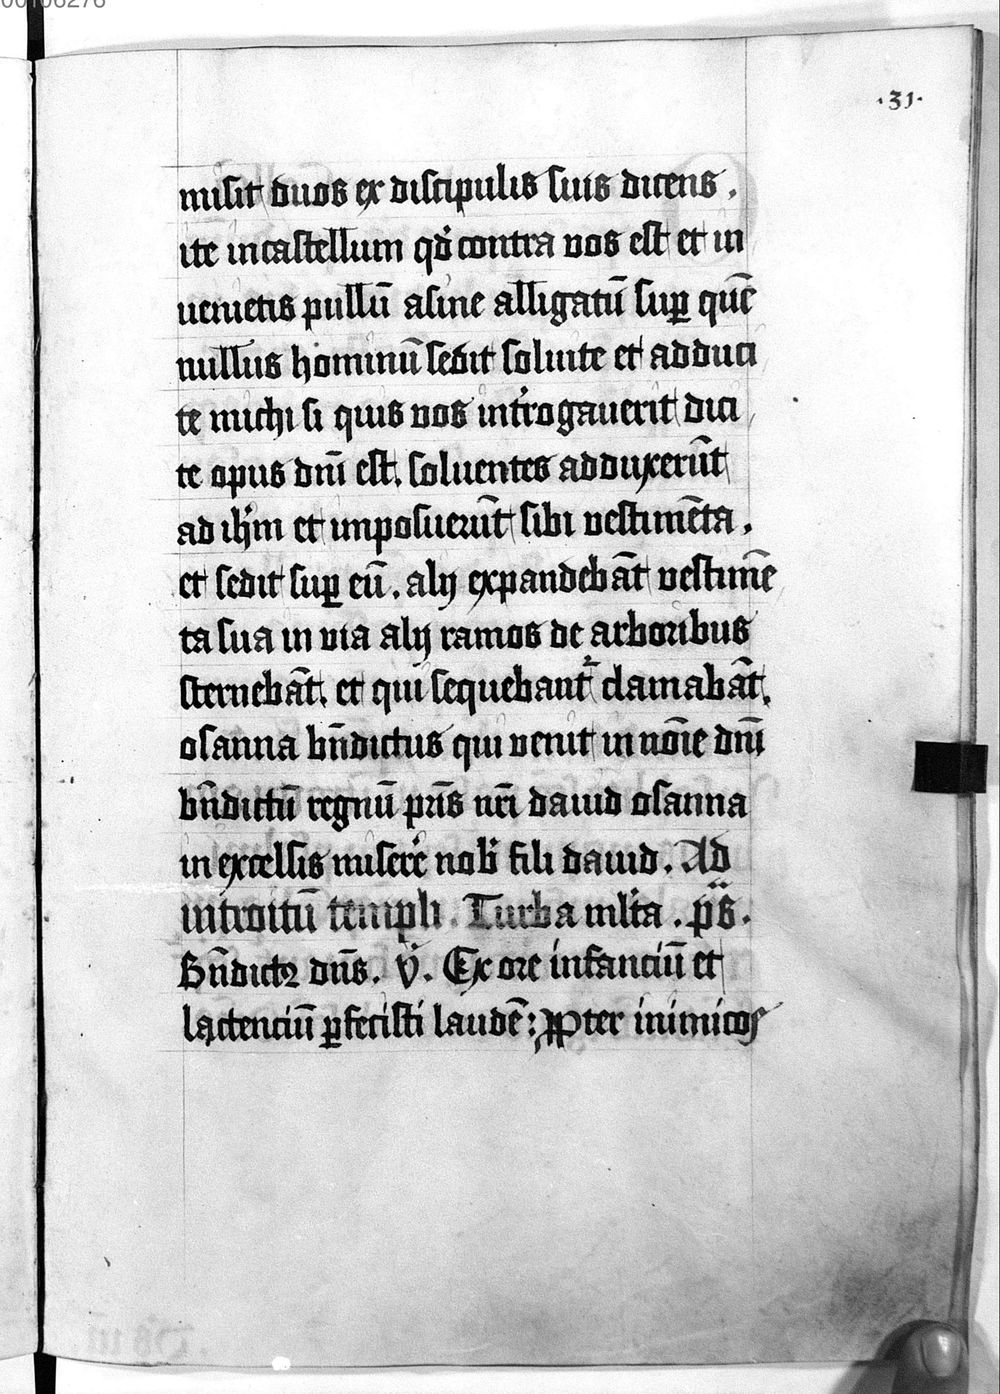 00106276
.31.
misit duos ex discipulis suis dicens .
ite in castellum qđ contra vos est et in
uenietis pullū asine alligatū sup quē
nullus hominū sedit soluite et adduci
te michi si quis vos int̓rogauerit dici
te opus dn̄i est. soluentes adduxerūt
ad ih̓m et imposuerūt sibi vestimēta .
et sedit sup eū . alij expandebāt vestimē
ta sua in via alij ramos de arboribus
sternebāt. et qui sequebant clamabāt.
osanna bn̄dictus qui venit in nōie dn̄i
bn̄dictū regnū pr̄is nr̄i dauid osanna
in excelsis miserere nob̓ fili dauid . Ad
introitū templi . Turba ml̓ta . p̄s .
Bn̄dictꝰ dn̄s . v̓ . Ex ore infanciū et
lactenciū ꝑfecisti laudē : ꝓpter inimicos